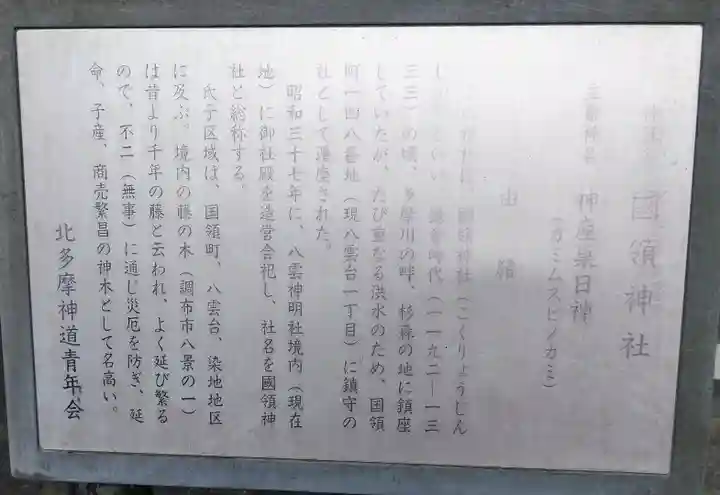 國領神社
神座巣日神
(カミムスビノカミ)
由緒
国領神社(こくりょうしん
鎌倉時代(一一九二ー一三
三三)の頃、多摩川の畔、杉森の地に鎮座
していたが、たび重なる洪水のため、国領
町一四八番地(現八雲台一丁目)に鎮守の
社として遷座された。
昭和三十七年に、八雲神明社境内(現在
地)に御社殿を造営合祀し、社名を國領神
社と総称する。
氏子区域は、国領町、八雲台、染地地区
に及ぶ。境内の藤の木(調布市八景の一)
は昔より千年の藤と云われ、よく延び繁る
ので、不二(無事)に通じ災厄を防ぎ、延
命、子産、商売繁昌の神木として名高い。
北多摩神道青年会